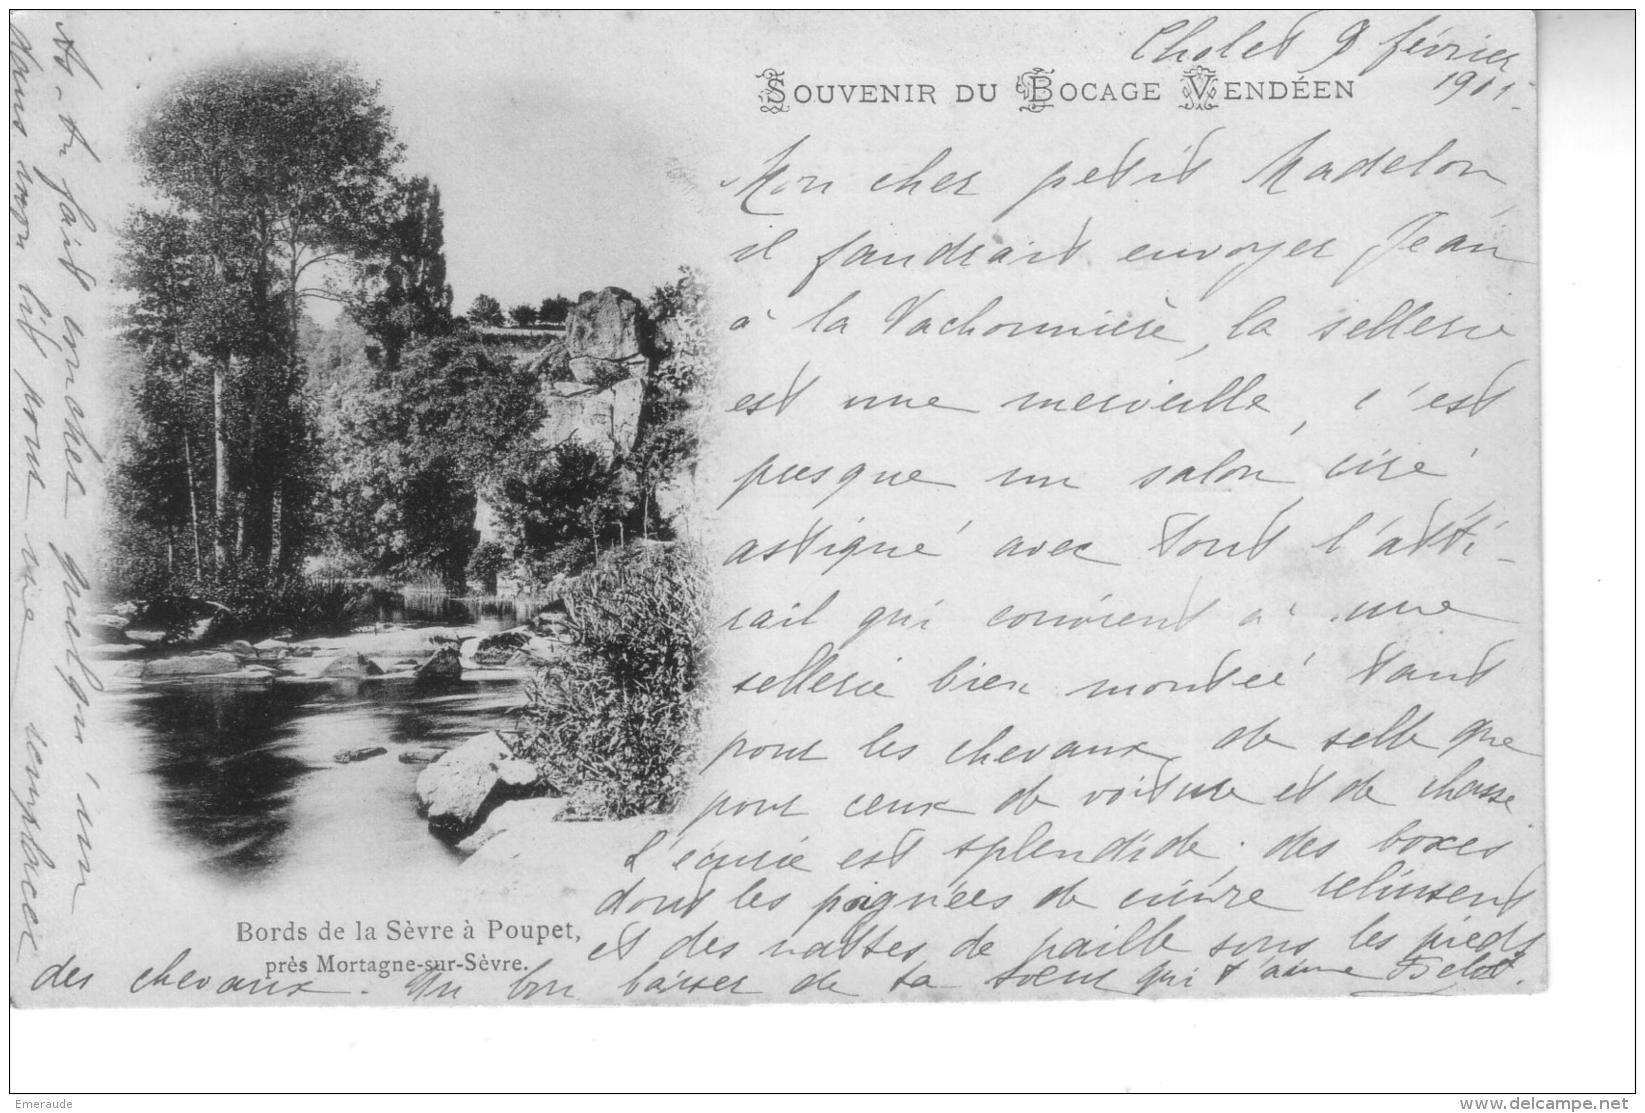 Cholet 9 février
1901
SOUVENIR DU BOCAGE VENDÉEN
Mon cher petit Madelon,
il faudrait envoyer Jean
à la Vachonnière, la sellerie
est une merveille, c'est
presque un salon, ciré
astiqué avec tout l'atti-
rail qui convient à une
sellerie bien montée tant
pour les chevaux de selle que
pour ceux de voiture et de chasse
L'écurie est splendide. des boxes
dont les poignées de cuivre reluisent
et des nattes de paille sous les pieds
des chevaux. Un bon baiser de ta sœur qui t'aime
As-tu fait coucher quelqu'un
dans mon lit pour me remplacer
Bords de la Sèvre à Poupet,
près Mortagne-sur-Sèvre.
Emeraude
www.delcampe.net